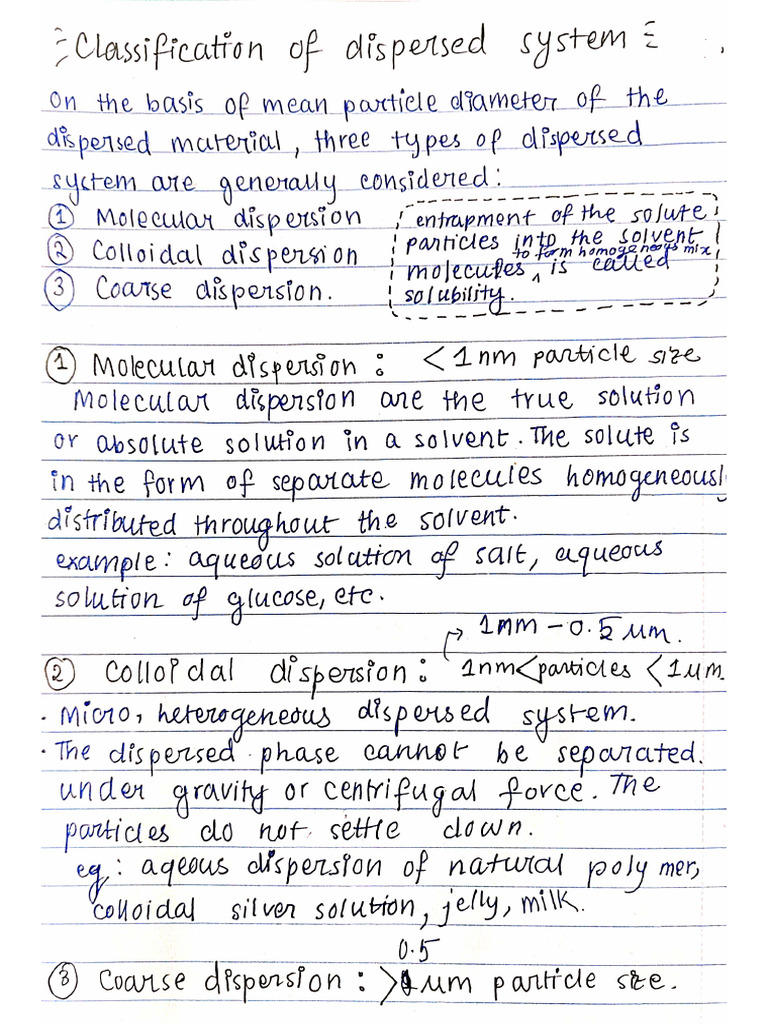 Classification of dispersed system
On the basis of mean particle diameter of the
dispersed material, three types of dispersed
system are generally considered:
① Molecular dispersion
② Colloidal dispersion
③ Coarse dispersion.
entrapment of the solute
particles into the solvent
to form homogeneous mix
molecules, is called
solubility.
① Molecular dispersion : < 1 nm particle size
Molecular dispersion are the true solution
or absolute solution in a solvent. The solute is
in the form of separate molecules homogeneously
distributed throughout the solvent.
example: aqueous solution of salt, aqueous
solution of glucose, etc.
1nm – 0.5 μm.
② Colloidal dispersion : 1nm < particles < 1μm
· Micro, heterogeneous dispersed system.
· The dispersed phase cannot be separated.
under gravity or centrifugal force. The
particles do not settle down.
eg: aqeous dispersion of natural polymer,
colloidal silver solution, jelly, milk.
0.5
③ Coarse dispersion : > 1 μm particle size.